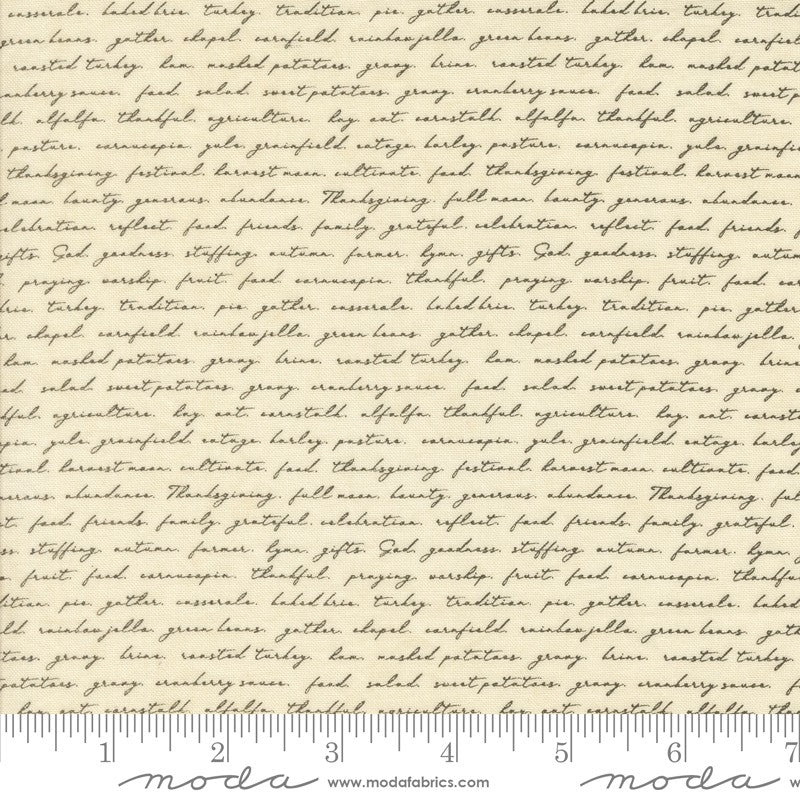 casserole. baked brie. turkey. tradition. pie. gather. casserole. baked brie. turkey.
green beans. gather. chapel. cornfield. rainbow jello. green beans. gather. chapel.
roasted turkey. ham. mashed potatoes. gravy. brine. roasted turkey. ham. mashed
cranberry sauce. food. salad. sweet potatoes. gravy. cranberry sauce. food. salad. sweet
alfalfa. thankful. agriculture. hay. oat. cornstalk. alfalfa. thankful. agriculture.
pasture. cornucopia. yule. grainfield. cotage. barley. pasture. cornucopia. yule.
thanksgiving. festival. harvest moon. cultivate. food. thanksgiving. festival. harvest moon
moon. bounty. generous. abundance. Thanksgiving. full moon. bounty. generous. abundance.
celebration. reflect. food. friends. family. grateful. celebration. reflect. food. friends.
gifts. God. goodness. stuffing. autumn. farmer. hymn. gifts. God. goodness. stuffing.
praying. worship. fruit. food. cornucopia. thankful. praying. worship. fruit. food.
turkey. tradition. pie. gather. casserole. baked brie. turkey. tradition. pie. gather
chapel. cornfield. rainbow jello. green beans. gather. chapel. cornfield. rainbow jello.
ham. mashed potatoes. gravy. brine. roasted turkey. ham. mashed potatoes. gravy. brine
salad. sweet potatoes. gravy. cranberry sauce. food. salad. sweet potatoes. gravy.
agriculture. hay. oat. cornstalk. alfalfa. thankful. agriculture. hay. oat.
yule. grainfield. cotage. barley. pasture. cornucopia. yule. grainfield. cotage.
harvest moon. cultivate. food. thanksgiving. festival. harvest moon. cultivate. food.
abundance. Thanksgiving. full moon. bounty. generous. abundance. Thanksgiving.
food. friends. family. grateful. celebration. reflect. food. friends. family. grateful.
stuffing. autumn. farmer. hymn. gifts. God. goodness. stuffing. autumn. farmer. hymn.
fruit. food. cornucopia. thankful. praying. worship. fruit. food. cornucopia.
pie. gather. casserole. baked brie. turkey. tradition. pie. gather. casserole. baked
rainbow jello. green beans. gather. chapel. cornfield. rainbow jello. green beans.
gravy. brine. roasted turkey. ham. mashed potatoes. gravy. brine. roasted turkey.
potatoes. gravy. cranberry sauce. food. salad. sweet potatoes. gravy. cranberry sauce.
hay. oat. cornstalk. alfalfa. thankful. agriculture. hay. oat. cornstalk. alfalfa.
1 2 3 4 5 6 7
moda www.modafabrics.com moda